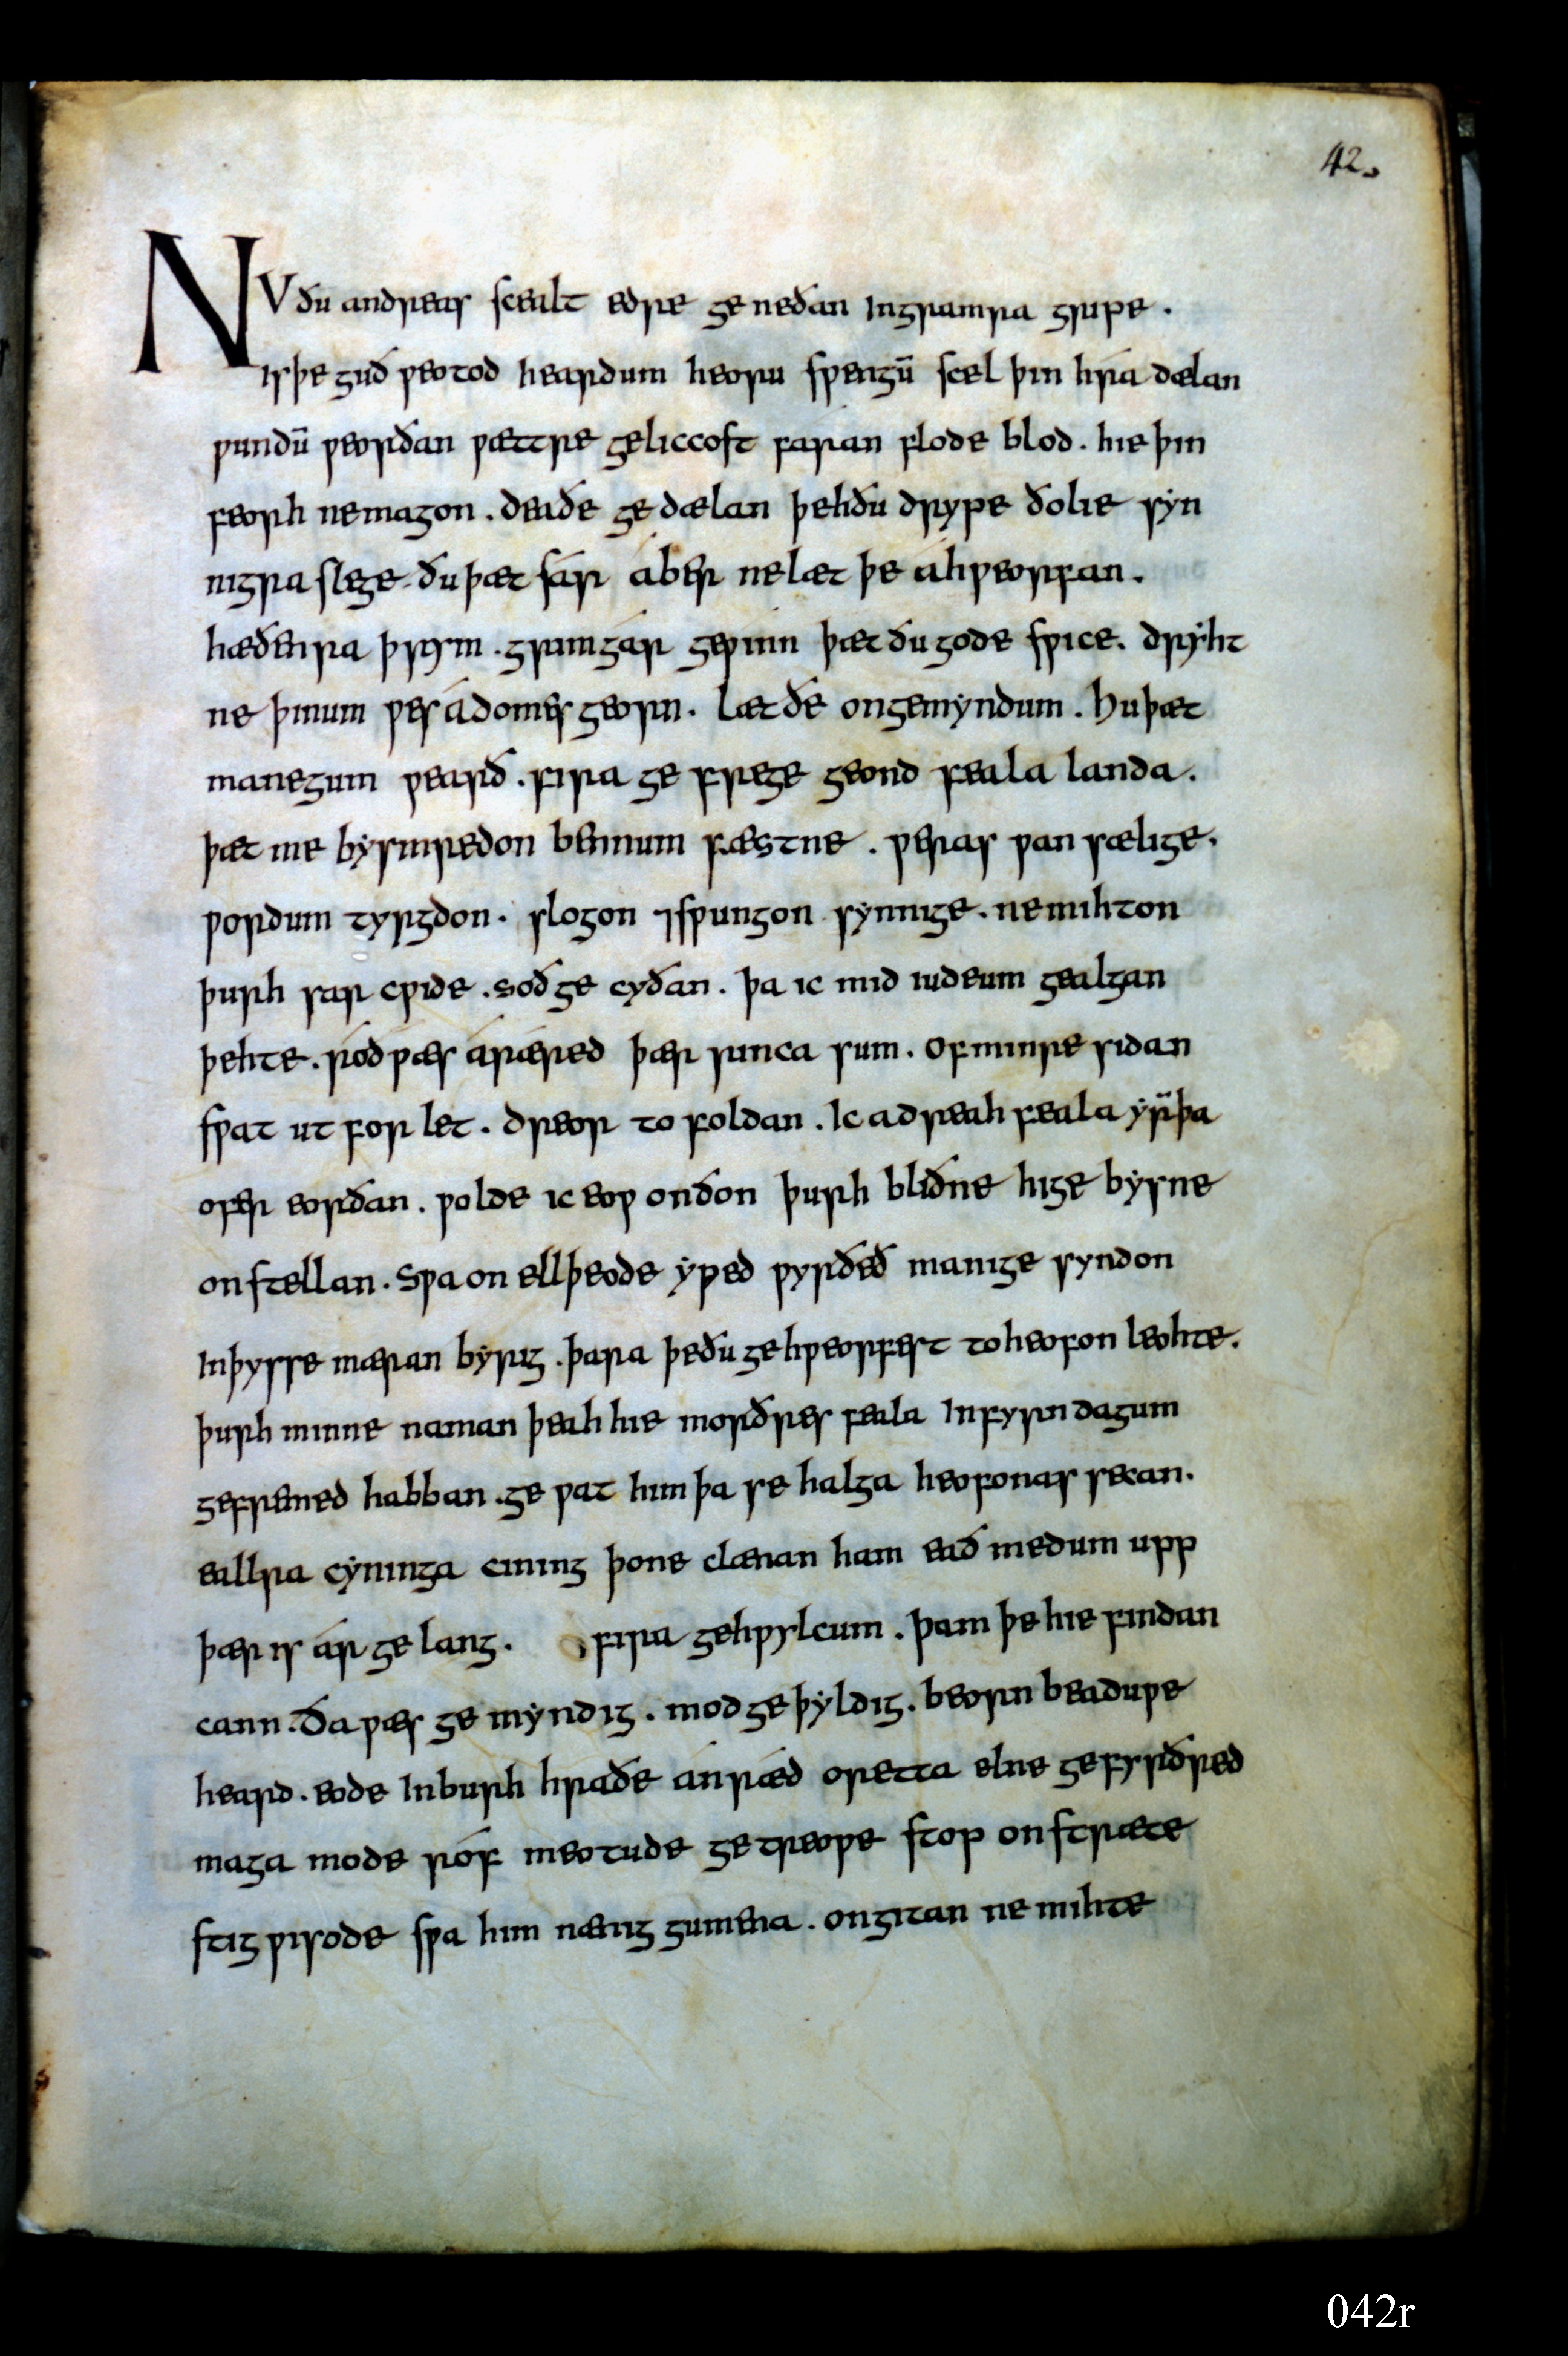 42.
NU ðu andreas scealt edre ge neðan Ingramra gripe.
is þe guð ƿeotod heardum heoru sƿengū scel þin hra dælan
ƿundū ƿeorðan ƿættre geliccost faran flode blod. hie þin
feorh nemagon. deaðe ge dælan þehðu drype ðolie syn
nigra slege. ðu þæt sár áber nelæt þe áhƿeorfan.
hæðenra þrym. grim gár geƿinn þæt ðu gode sƿice. dryht
ne þinum ƿes á domes georn. Læt ðe ongemyndum. hu þæt
manegum ƿearð. fira ge frege geond feala landa.
þæt me bysmredon bennum fæstne. ƿeras ƿan sælige.
ƿordum tyrgdon. slogon ⁊sƿungon synnige. ne mihton
þurh sar cƿide. soð ge cyðan. þa ic mid iudeum gealgan
þehte. ród ƿæs áræred þær rinca sum. of minre sidan
sƿat ut for let. dreor to foldan. Ic adreah feala yrmþa
ofer eorðan. ƿolde ic eoƿ on ðon þurh bliðne hige bysne
onstellan. Sƿa on ellþeode yƿed ƿyrðeð manige syndon
In þysse mæran byrig. þara þeðu gehƿeorfest to heofon leohte.
þurh minne naman þeah hie morðres feala In fyrn dagum
gefremed habban. ge ƿat him þa se halga heofonas secan.
eallra cyninga cining þone clænan ham eað medum upp
þær is ár ge lang. fira gehƿylcum. þam þe hie findan
cann. Ða ƿæs ge myndig. mod ge þyldig. beorn beaduƿe
heard. eode In burh hraðe ánræd oretta elne gefyrðred
maga mode róf meotude ge treoƿe stop on stræte
stig ƿisode sƿa him nænig gumena. ongitan ne mihte
042r